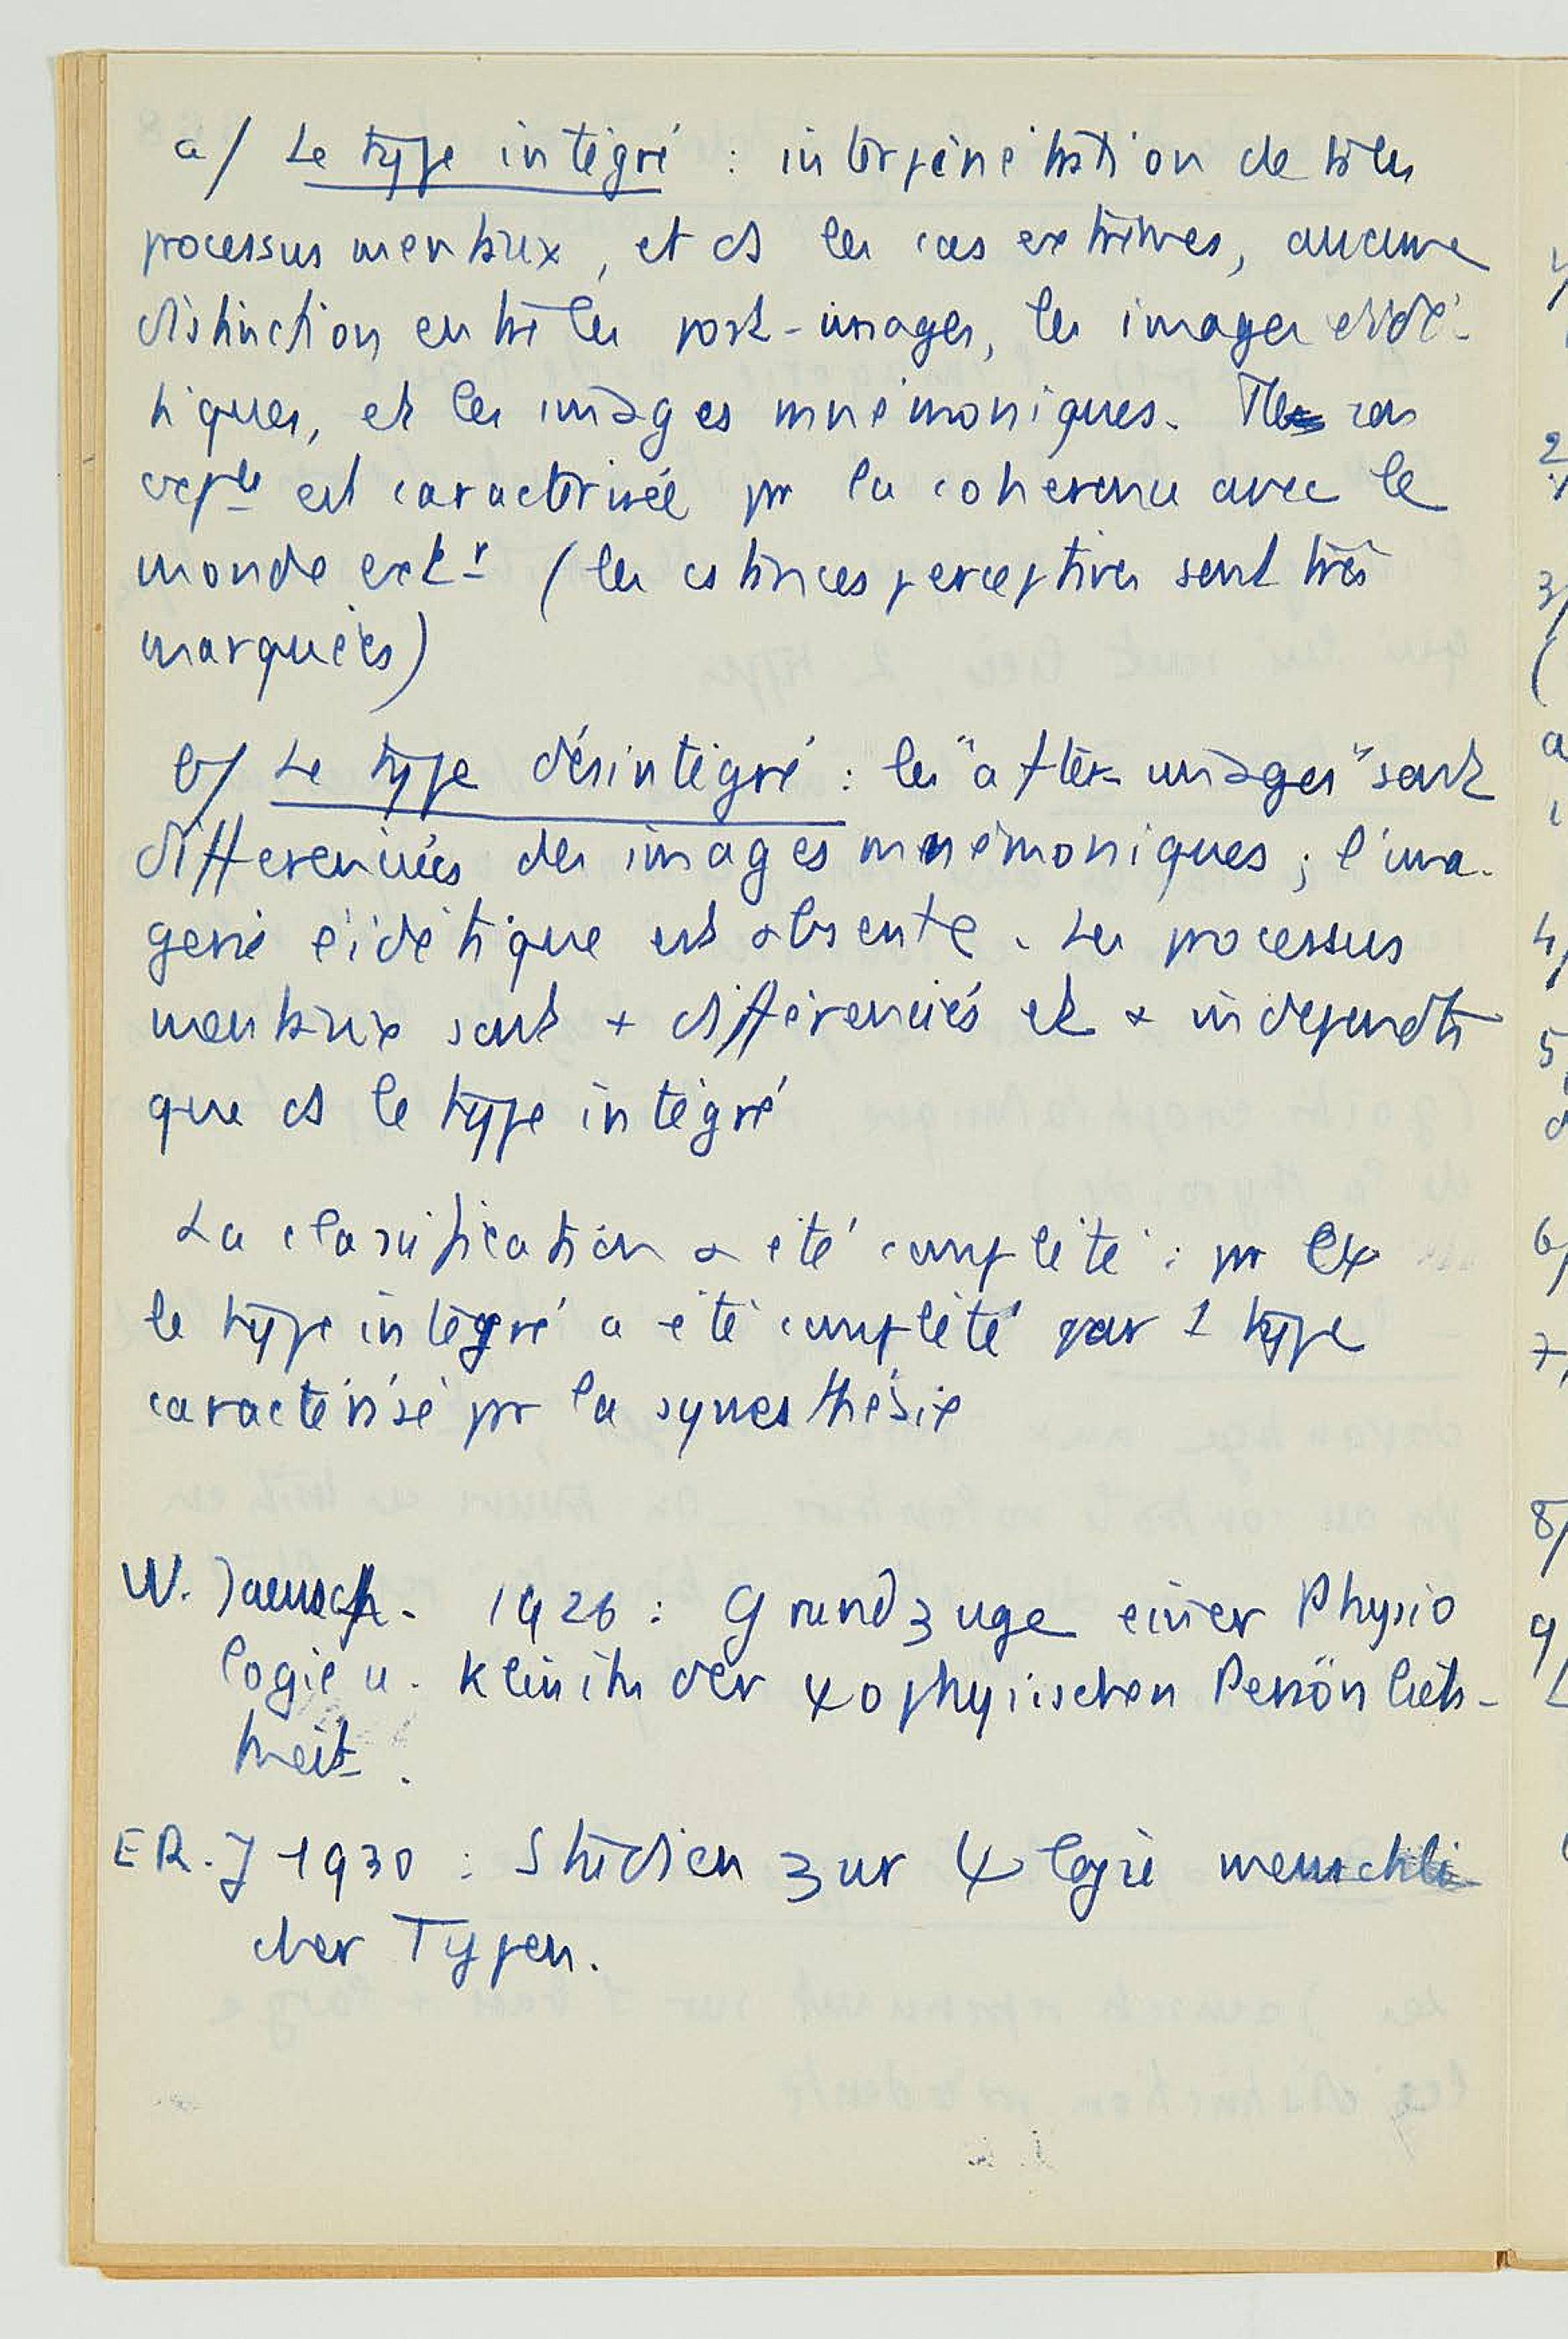 a/ Le type intégré : interpénétration de ts les
processus mentaux, et ds les cas extrêmes, aucune
distinction entre les post-images, les images eidé-
tiques, et les images mnémoniques.
est caractérisée pr la cohérence avec le
monde extr (les cstances perceptives sont très
marquées)
b/ Le type désintégré : les "after-images" sont
différenciées des images mnémoniques ; l'ima-
gerie eidétique est absente. Les processus
mentaux sont + différenciés et + indépendts
que ds le type intégré
La classification a été complété : pr ex
le type intégré a été complété par 1 type
caractérisé pr la synesthésie
W. Jaensch. 1926 : Grundzuge einer Physio
logie u. Klinik der ψophysischen Persönlich-
keit.
ER. J 1930 : Studien zur ψlogie menschli
cher Typen.
2
3/
(
a
4/
5
6/
7,
8/
9